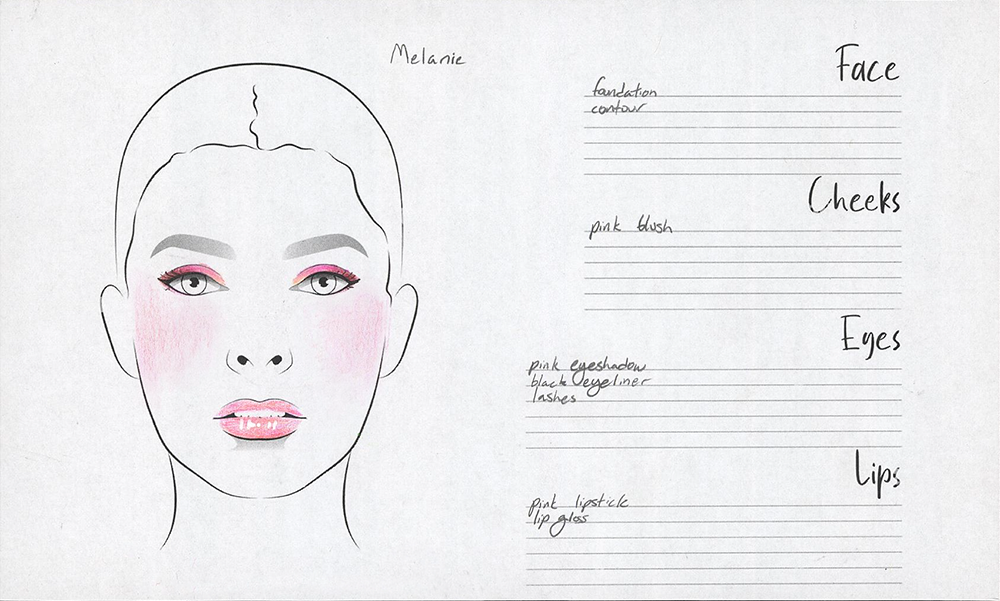 Melanie
Face
foundation
contour
Cheeks
pink blush
Eyes
pink eyeshadow
black eyeliner
lashes
Lips
pink lipstick
lip gloss